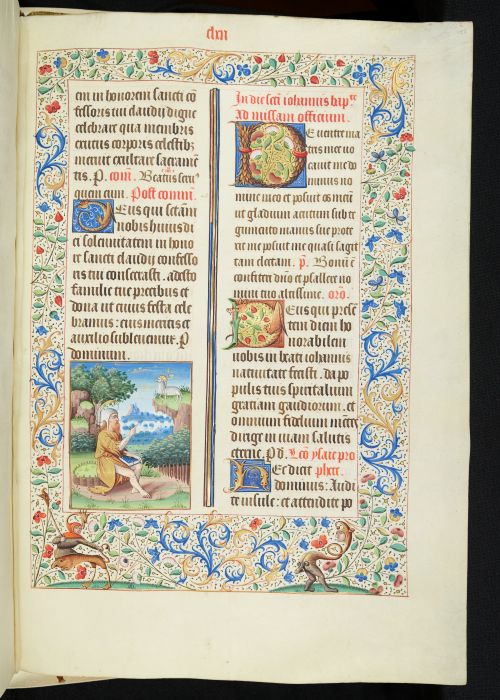 clxii
em in honorem sancti cō
fessoris tui claudij digne
celebrat qua membris
exutus corporis celestibz
meruit exultare sacramē
tis. P. com̄. Beatus seru
quem cum. Post comm̄.
Deus qui sctām
nobis huius di
ei solemnitatem in hono
re sancti claudij confesso
ris tui consecrasti. adesto
familie tue precibus et
dona ut cuius festa cele
bramus : eius meritis et
auxilio subleuemur. P
dominum.
In die scti iohannis bapte
Ad missam officium.
De uentre ma
tris mee uo
cauit me do
minus no
mine meo et posuit os meū
ut gladium acutum sub te
gumento manus sue prote
xit me posuit me quasi sagit
tam electam. p. Bonū ē
confiteri dn̄o et psallere no
mini tuo altissime. oro.
Deus qui presē
tem diem ho
norabilem
nobis in beati iohannis
natiuitate fecisti. da po
pulis tuis spiritualium
gratiam gaudiorum. et
omnium fidelium mētes
dirige in uiam salutis
eterne. P. Lco ysaie pro
Hec dicit phete.
dominus : Audi
te insule : et attendite po